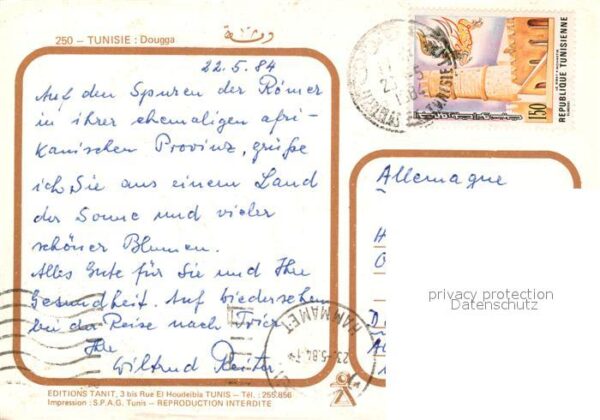 250 - TUNISIE : Dougga دقة
22.5.84
Auf den Spuren der Römer
in ihrer ehemaligen afri-
kanischen Provinz, grüße
ich Sie aus einem Land
der Sonne und vieler
schöner Blumen.
Alles Gute für Sie und Ihre
Gesundheit. Auf Wiedersehen
bei der Reise nach Trier
Ihre
Wiltrud Reiter
EDITIONS TANIT, 3 bis Rue El Houdeibia TUNIS - Tél. : 255.856
Impression : S.P.A.G. Tunis - REPRODUCTION INTERDITE
REPUBLIQUE TUNISIENNE
150
Allemagne
privacy protection
Datenschutz
HAMMAMET
23.-5.84